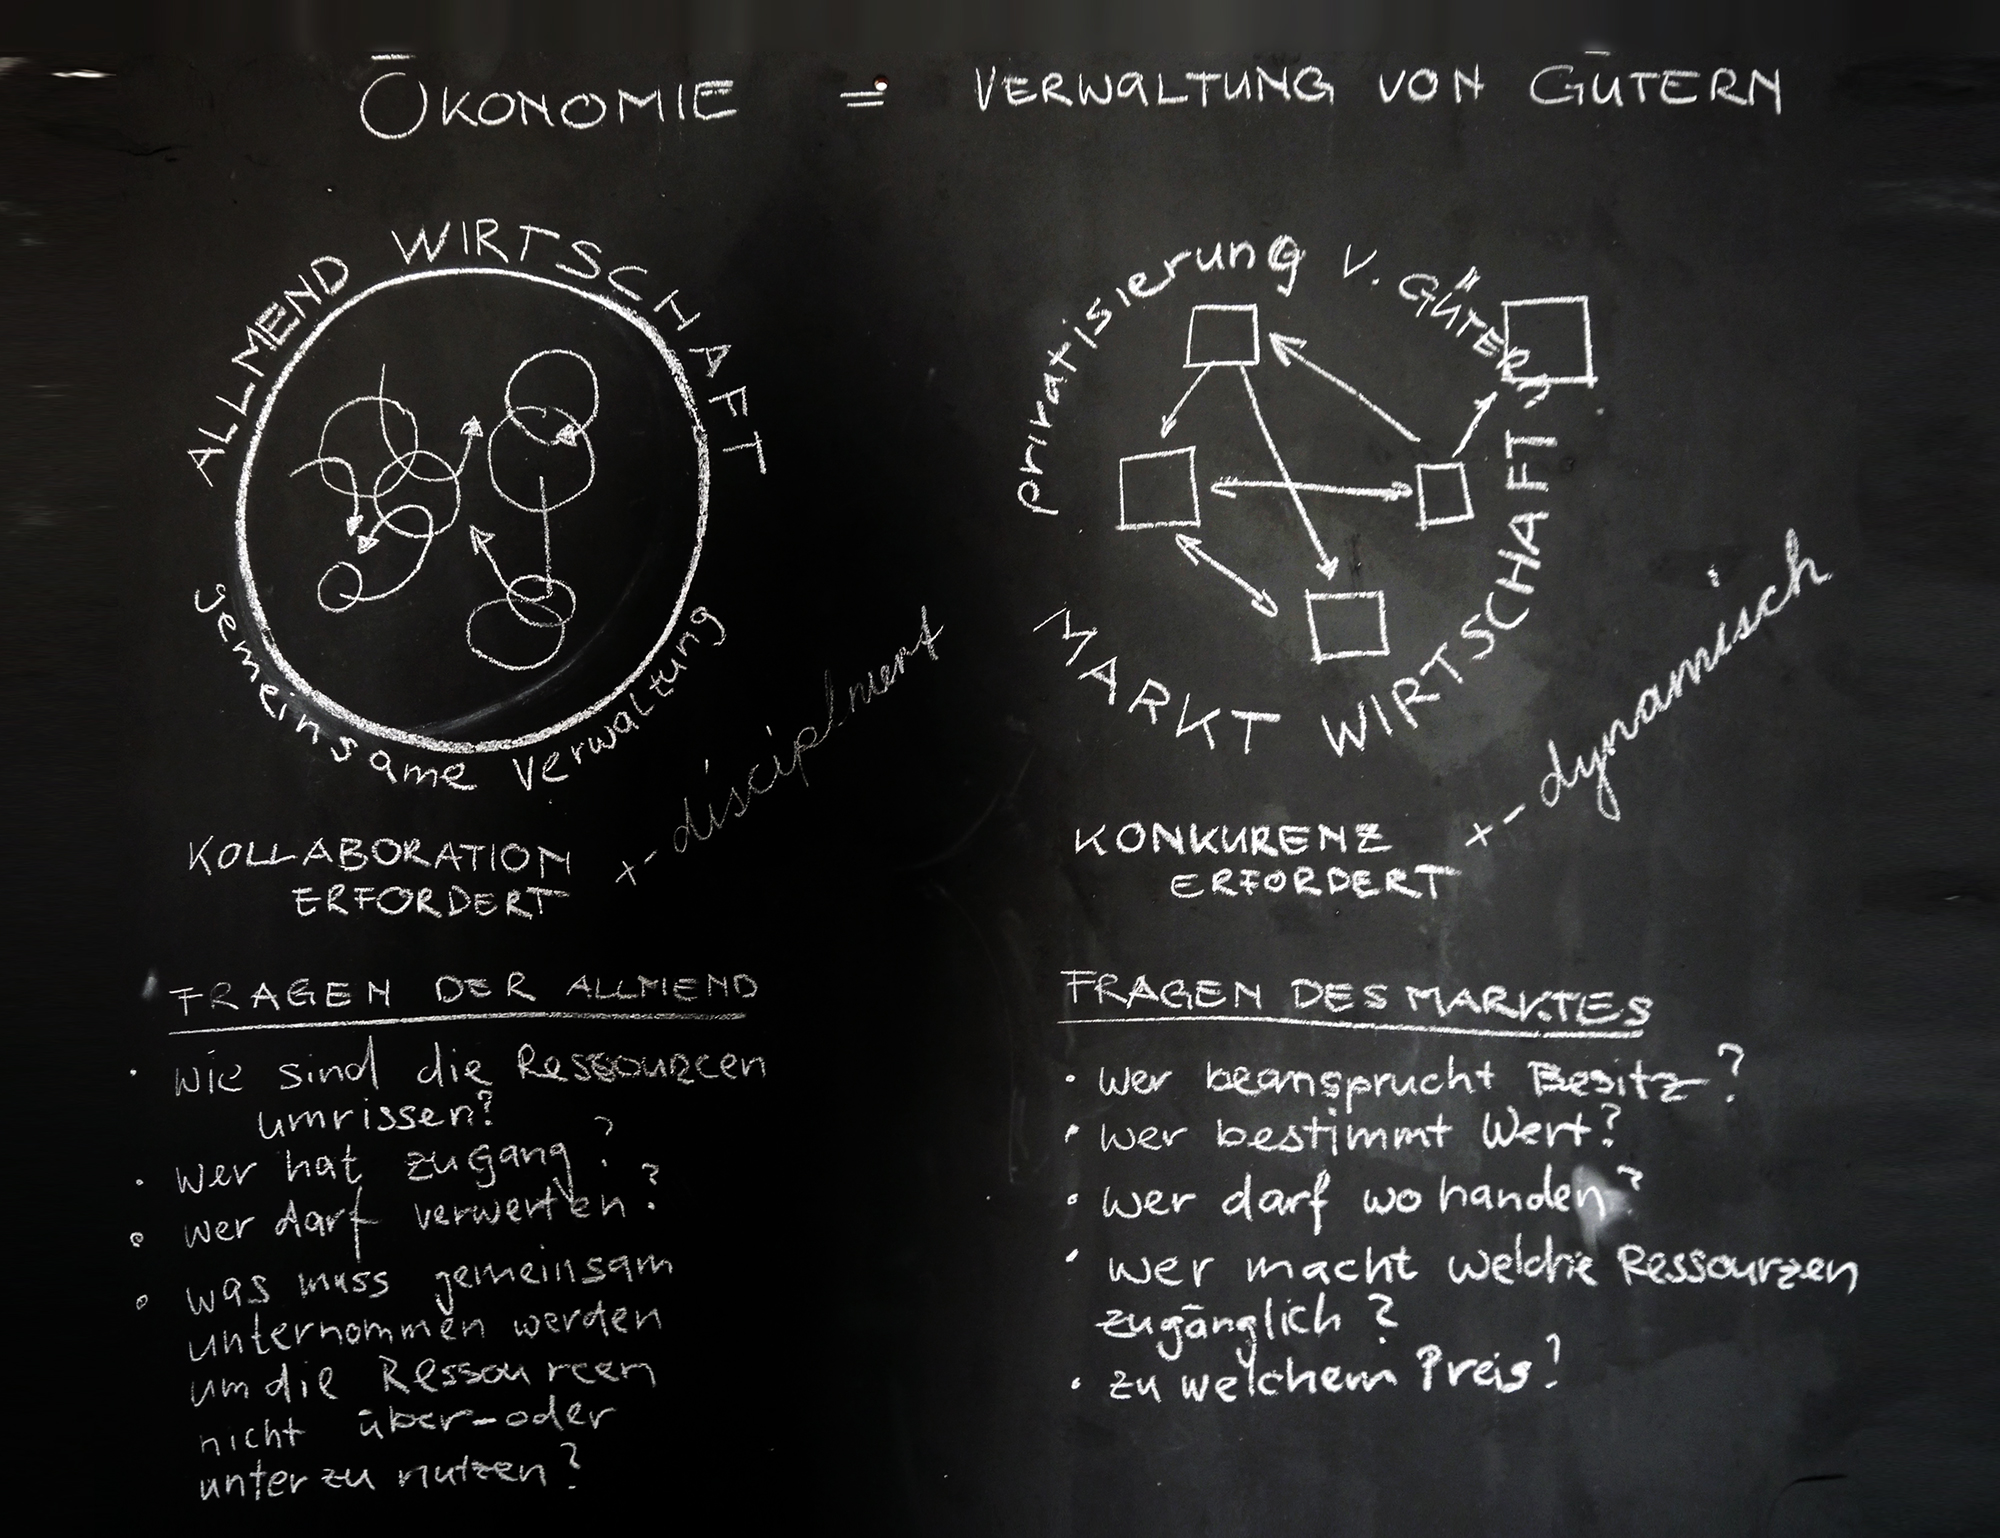 ÖKONOMIE = VERWALTUNG VON GÜTERN
ALLMEND WIRTSCHAFT
gemeinsame Verwaltung
KOLLABORATION
ERFORDERT
x - discipliniert
FRAGEN DER ALLMEND
• wie sind die Ressourcen
umrissen?
• wer hat zugang?
• wer darf verwerten?
• was muss gemeinsam
unternommen werden
um die Ressourcen
nicht über- oder
unter zu nutzen?
privatisierung v. GÜTER
MARKT WIRTSCHAFT
KONKURENZ
ERFORDERT
x - dynamisch
FRAGEN DES MARKTES
• wer beansprucht Besitz?
• wer bestimmt Wert?
• wer darf wo handen?
• wer macht welche Ressourzen
zugänglich?
• zu welchem Preis?